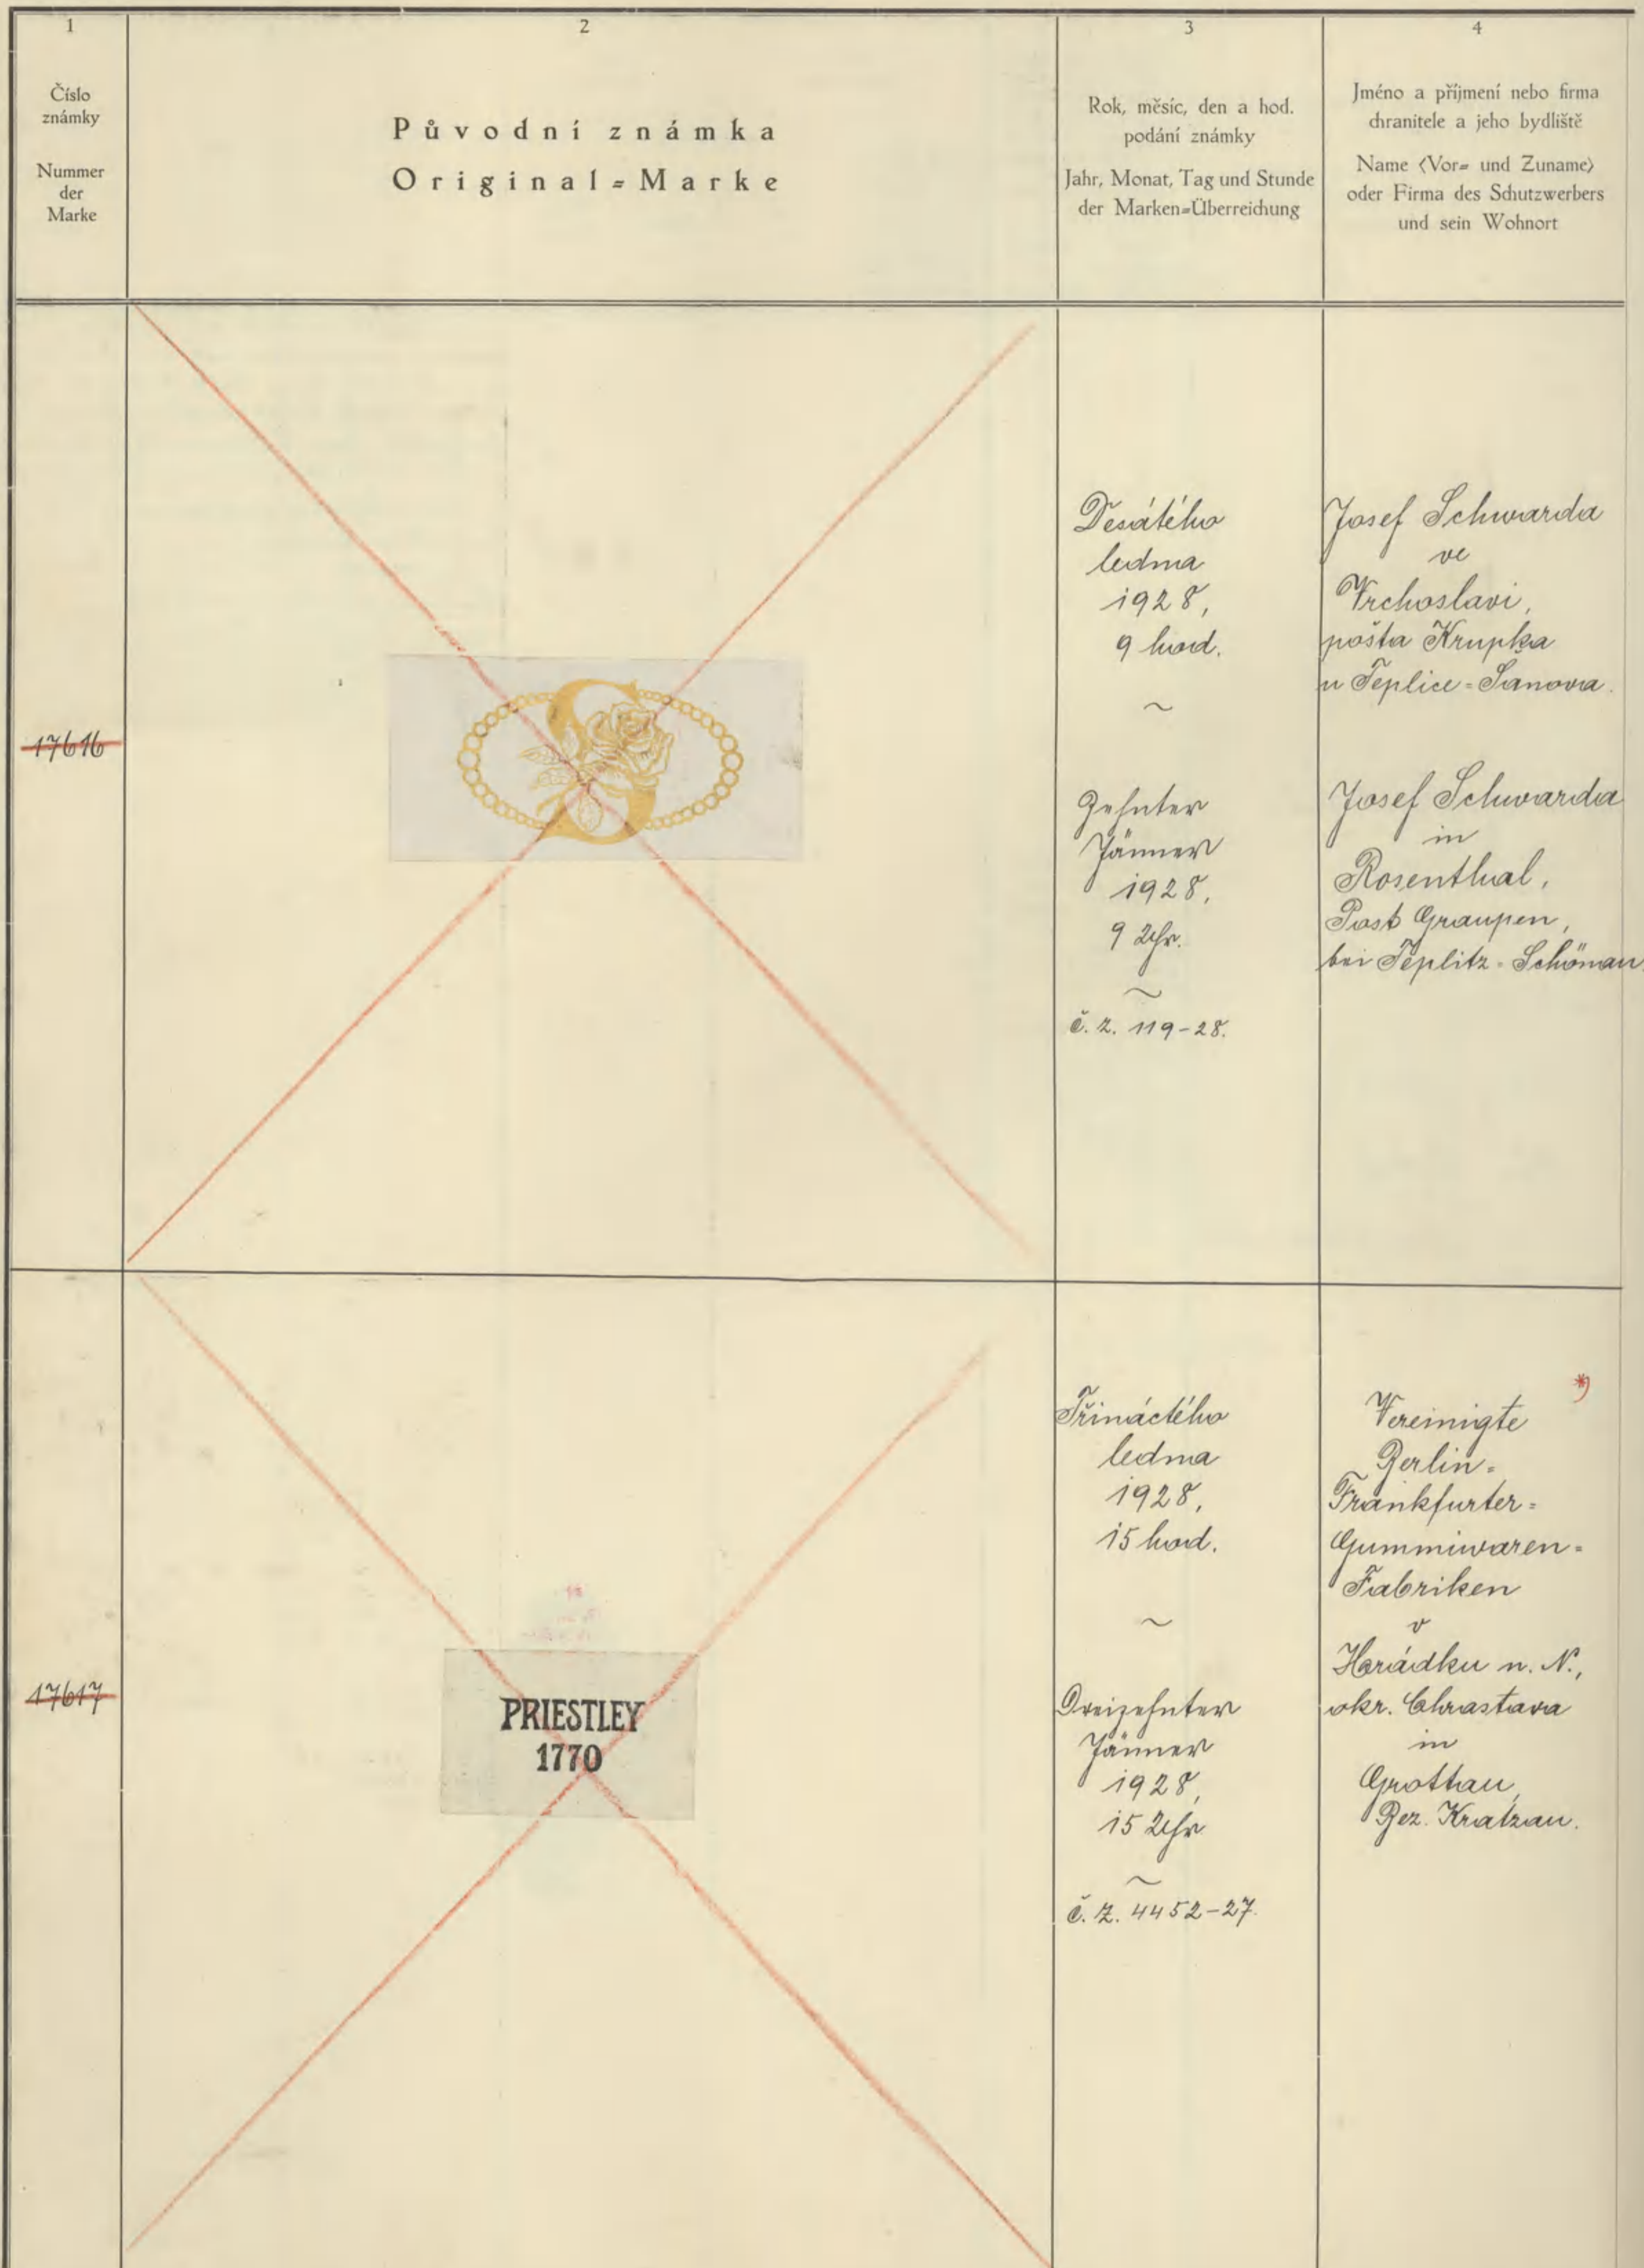 1
Číslo
známky
Nummer
der
Marke
2
Původní známka
Original=Marke
3
Rok, měsíc, den a hod.
podání známky
Jahr, Monat, Tag und Stunde
der Marken=Überreichung
4
Jméno a příjmení nebo firma
chranitele a jeho bydliště
Name (Vor= und Zuname)
oder Firma des Schutzwerbers
und sein Wohnort
17616
S
Desátého
ledna
1928,
9 hod.
~
Zehnter
Jänner
1928,
9 Uhr.
~
č. z. 119-28.
Josef Schwarda
ve
Vrchoslavi,
pošta Krupka
u Teplice=Šanova.
Josef Schwarda
in
Rosenthal,
Post Graupen,
bei Teplitz=Schönau
17617
PRIESTLEY
1770
Třináctého
ledna
1928,
15 hod.
~
Dreizehnter
Jänner
1928,
15 Uhr
~
č. z. 4452-27.
*)
Vereinigte
Berlin=
Frankfurter=
Gummiwaren=
Fabriken
v
Hrádku n. N.,
okr. Chrastava
in
Grottau,
Bez. Kratzau.